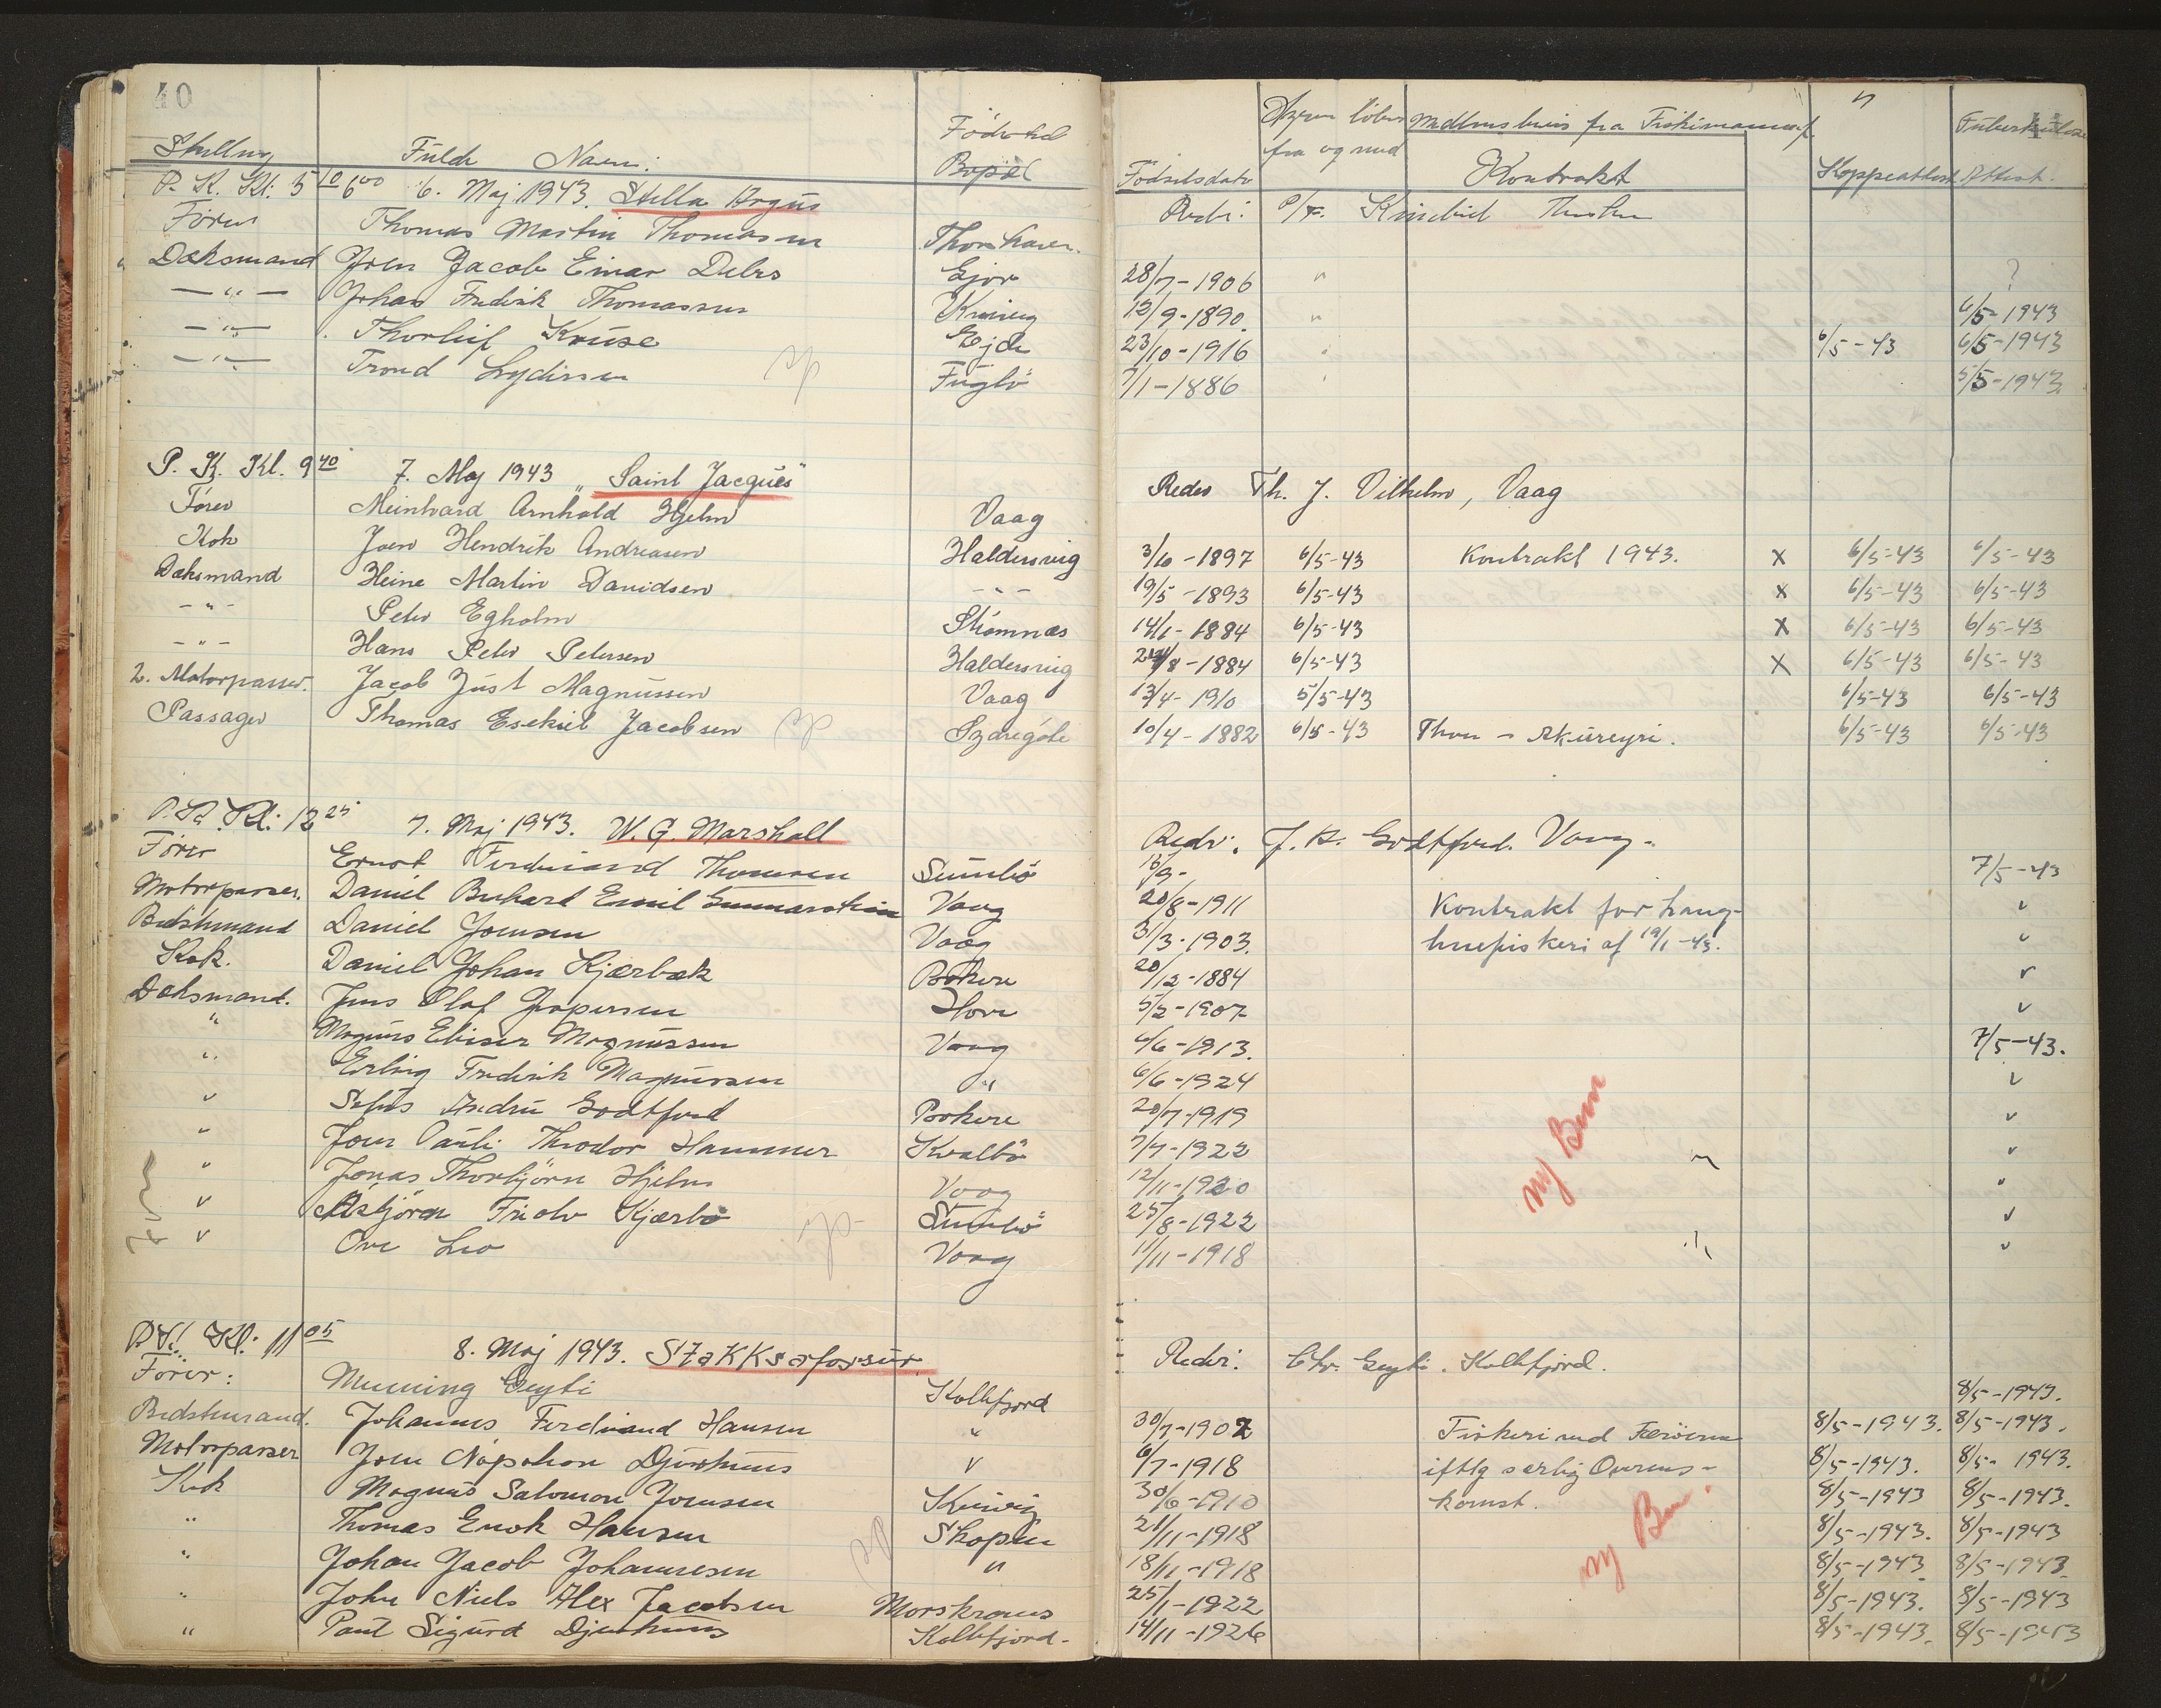 40
Stilling Fulde Navn: Födested Bopæl Födselsdato fra og med Kontrakt Koppeattest Tuberkulose Attest.
P. K. Kl: 5 6. Maj 1943. Stella Argus Reder:
Förer Thomas Martin Thomassen Thorshavn.
Dæksmand Joen Jacob Einar Debes Gjov 28/7-1906 " ?
—"— Johan Fredrik Thomassen Kvivig 12/9-1890. " 6/5-1943
—"— Thorleif Kruse Ejde 23/10-1916 " 6/5-43 6/5-1943
—"— Trond Lydersen Fuglö 7/1-1886 " 5/5-1943.
P. K. Kl. 9 40 7. Maj 1943 „Saint Jacques" Reder Th. J. Vilhelm, Vaag
Förer Meinhard Arnhold Hjelm Vaag
Kok Joen Hendrik Andreasen Haldersvig 3/10-1897 6/5-43 Kontrakt 1943. X 6/5-43 6/5-43
Dæksmand Heine Martin Davidsen -"- 19/5-1893 6/5-43 x 6/5-43 6/5-43
-"- Peter Egholm Strömnæs 14/1-1884 6/5-43 X 6/5-43 6/5-43
-"- Hans Peter Petersen Haldersvig /8-1884 6/5-43 X 6/5-43 6/5-43
2. Motorpasser. Jacob Just Magnussen Vaag 13/4-1910 5/5-43 6/5-43 6/5-43
Passager Thomas Esekiel Jacobsen Sydregöte 10/4-1882 6/5-43 Thor - Akureyri. 6/5-43 6/5-43
P. K. Kl: 12 25 7. Maj 1943. W. G. Marshall Reder. J. K. Godtfred. Vaag.
Förer Ernst Ferdinand Thomsen Sumbö /9- 7/5-43
Motorpasser. Daniel Emil Gunnarstein Vaag 20/8-1911 Kontrakt for Lang- "
Bedstemand Daniel Joensen Vaag 31/3-1903. linefiskeri af 19/1-43. "
Kok. Daniel Johan Kjærbæk Porkere 20/12-1884 "
Dæksmand. Jens Olaf Jespersen Hove 5/2-1907 "
" Magnus Elieser Magnussen Vaag 6/6-1913. 7/5-43.
" Erling Fredrik Magnussen " 6/6-1924 "
" Andru Godtfred Porkere 20/7-1919 "
" Joen Pauli Theodor Hammer Kvalbö 7/7-1922 "
" Jonas Thorbjörn Hjelm Vaag 12/11-1920 "
" Asbjörn Kjærbo Sumbö 25/8-1922 "
" Ove Leo Vaag 11/11-1918 "
ny Bem
P. K. Kl: 11 05 8. Maj 1943. Stakksafossur Reder: Chr. Geyti. Kollefjord.
Förer: Geyti Kollefjord 8/5-1943.
Bedstemand. Johannes Ferdinand Hansen " 30/7-1902 Fiskeri ved Færöerne 8/5-1943. 8/5-1943.
Motorpasser Joen Napoleon Djurhuus " 6/7-1918 iflg særlig Overens- 8/5-1943. 8/5-1943.
Kok Magnus Salomon Joensen Kvivig 30/6-1910 komst. 8/5-1943 8/5-1943.
" Thomas Enok Hansen Skopen 21/11-1918 8/5-1943. 8/5-1943
" Johan Jacob Johannesen " 18/11-1918 8/5-1943 8/5-1943.
" John Niels Alex Jacobsen Morskranes 25/1-1922 8/5-1943. 8/5-1943
" Paul Sigurd Djurhuus Kollefjord. 14/11-1926 8/5-1943. 8/5-1943
ny Bem.